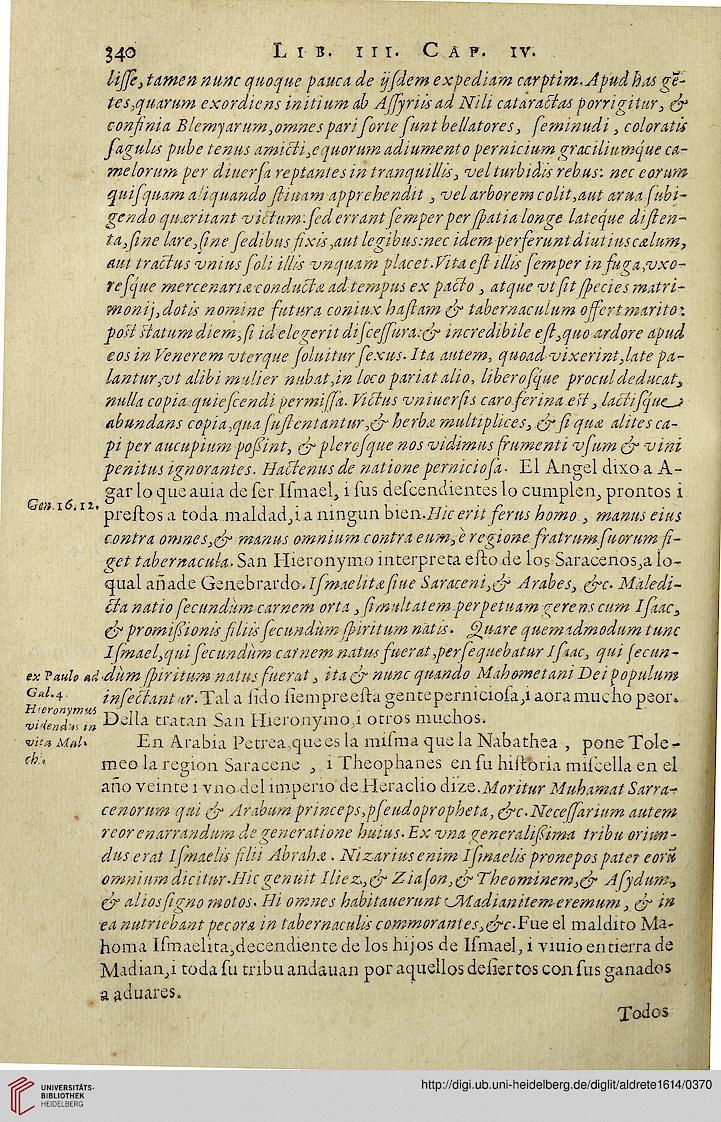 340 LIB. III. CAP. IV.
liſſe, tamen nunc quoque pauca de ijſdem expediam carptim. Apud has gẽ-
tes, quarum exordiens initium ab Aſſyriis ad Nili cataractas porrigitur, &
confinia Blemyarum, omnes pari ſorte ſunt bellatores, ſeminudi, coloratis
ſagulis pube tenus amicti, equorum adiumento pernicium graciliumque ca-
melorum per diuerſa reptantes in tranquillis, vel turbidis rebus: nec eorum
quiſquam aliquando ſtiuam apprehendit, vel arborem colit, aut arua ſubi-
gendo quæritant victum: ſed errant ſemper per ſpatia longe lateque diſten-
ta, ſine lare, ſine ſedibus fixis, aut legibus: nec idem perferunt diutius cælum,
aut tractus vnius ſoli illis vnquam placet. Vita eſt illis ſemper in fuga, vxo-
reſque mercenariæ conductæ ad tempus ex pacto, atque vt ſit ſpecies matri-
monij, dotis nomine futura coniux haſtam & tabernaculum offert marito:
poſt ſtatum diem, ſi id elegerit diſceſſura: & incredibile eſt, quo ardore apud
eos in Venerem vterque ſoluitur ſexus. Ita autem, quoad vixerint, late pa-
lantur, vt alibi mulier nubat, in loco pariat alio, liberoſque procul deducat,
nulla copia quieſcendi permiſſa. Victus vniuerſis caro ferina eſt, lactiſque
abundans copia, qua ſuſtentantur, & herbæ multiplices, & ſi quæ alites ca-
pi per aucupium poßint, & pleroſque nos vidimus frumenti vſum & vini
penitus ignorantes. Hactenus de natione pernicioſa. El Angel dixo a A-
gar lo que auia de ſer Iſmael, i ſus deſcendientes lo cumplen, prontos i
Gen. 16. 12. preſtos a toda maldad, i a ningun bien. Hic erit ferus homo, manus eius
contra omnes, & manus omnium contra eum, è regione fratrum ſuorum fi-
get tabernacula. San Hieronymo interpreta eſto de los Saracenos, a lo-
qual añade Genebrardo. Iſmaelitæ ſiue Saraceni, & Arabes, &c. Maledi-
cta natio ſecundùm carnem orta, ſimultatem perpetuam gerens cum Iſaac,
& promißionis filiis ſecundùm ſpiritum natis. Quare quemadmodum tunc
Iſmael, qui ſecundùm carnem natus fuerat, perſequebatur Iſaac, qui ſecun-
dùm ſpiritum natus fuerat, ita & nunc quando Mahometani Dei populum
inſectantur. Tal a ſido ſiempre eſta gente pernicioſa, i aora mucho peor.
Della tratan San Hieronymo, i otros muchos.
ex Paulo ad
Gal. 4.
Hieronymus
videndus in
vita Mal-
ch.
En Arabia Petrea, que es la miſma que la Nabathea, pone Tole-
meo la region Saracene, i Theophanes en ſu hiſtoria miſcella en el
año veinte i vno del imperio de Heraclio dize. Moritur Muhamat Sarra-
cenorum qui & Arabum princeps, pſeudopropheta, &c. Neceſſarium autem
reor enarrandum de generatione huius. Ex vna generalißima tribu oriun-
dus erat Iſmaelis filii Abrahæ. Nizarius enim Iſmaelis pronepos pater eorũ
omnium dicitur. Hic genuit Iliez, & Ziaſon, & Theominem, & Aſydum,
& alios ſigno motos. Hi omnes habitauerunt Madianitem eremum, & in
ea nutriebant pecora in tabernaculis commorantes, &c. Fue el maldito Ma-
homa Iſmaelita, decendiente de los hijos de Iſmael, i viuio en tierra de
Madian, i toda ſu tribu andauan por aquellos deſiertos con ſus ganados
a aduares.
Todos
UNIVERSITÄTS-
BIBLIOTHEK
HEIDELBERG
http://digi.ub.uni-heidelberg.de/diglit/aldrete1614/0370